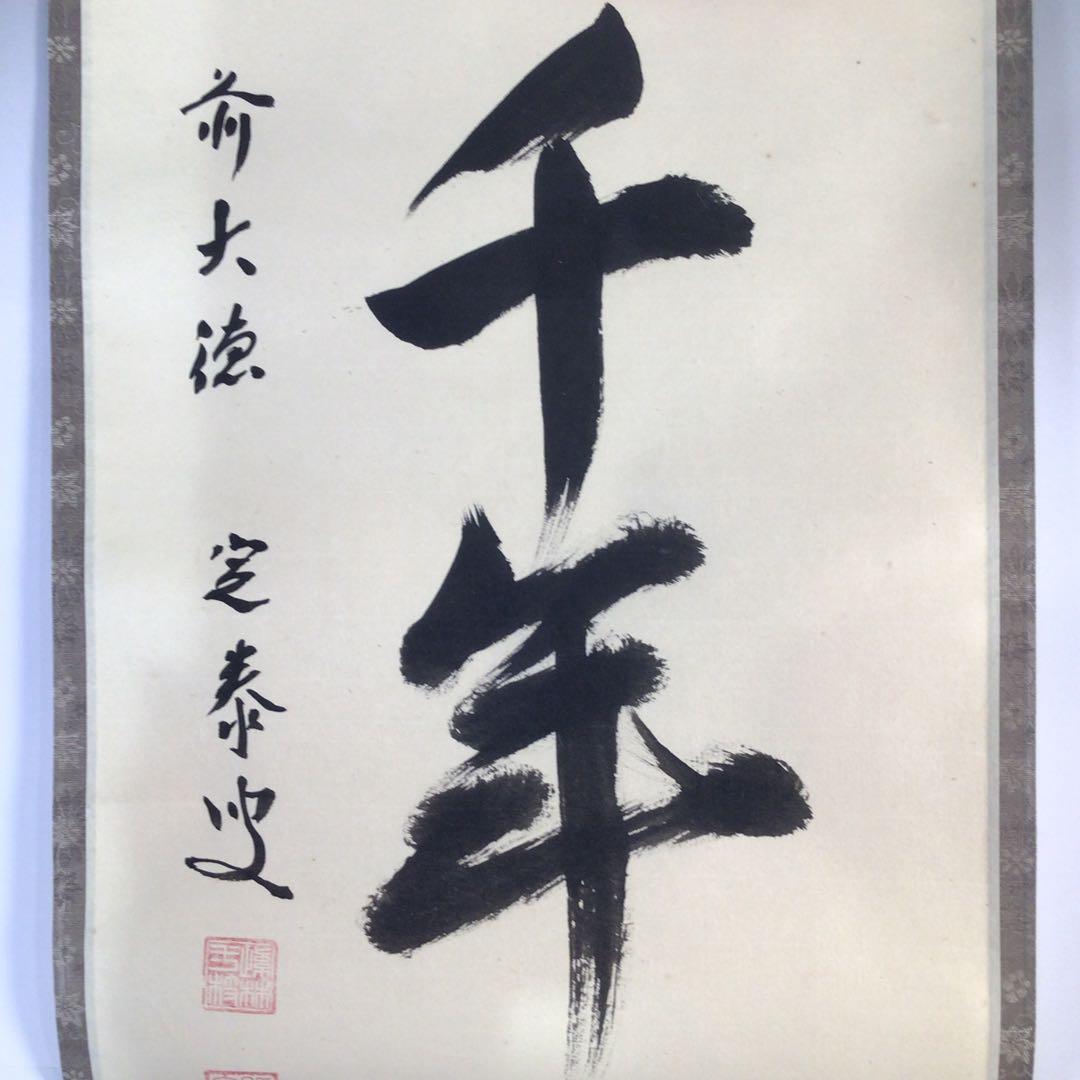 千年
前大徳 宏泰叟